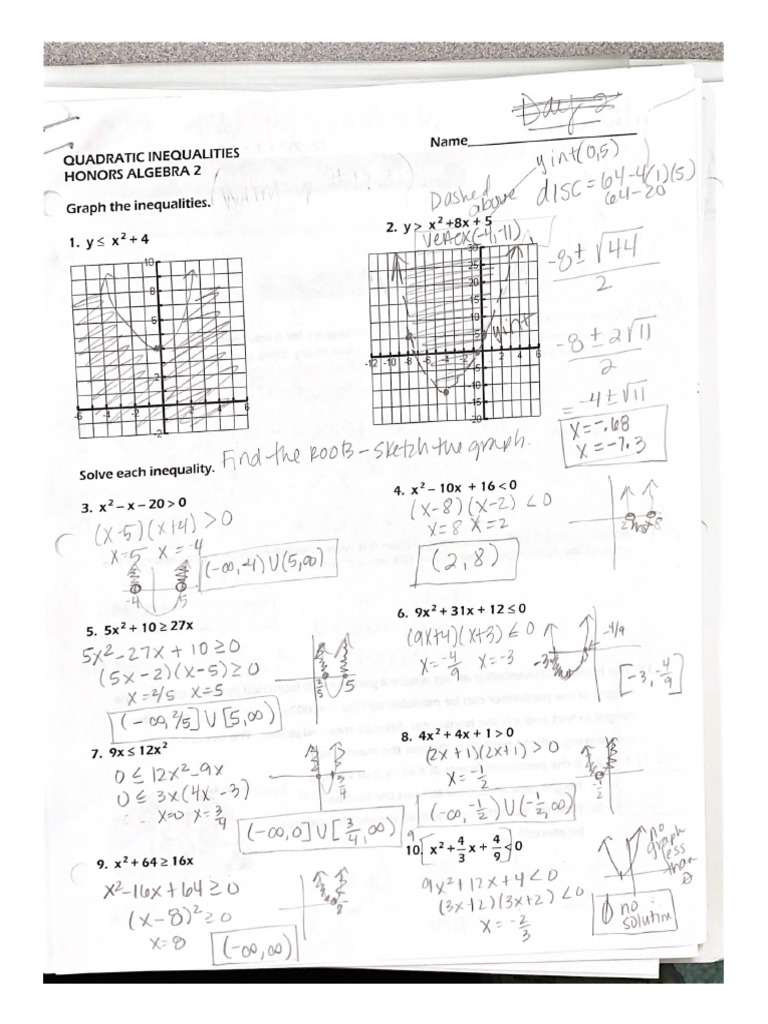 Day 2
QUADRATIC INEQUALITIES
HONORS ALGEBRA 2
Name
Graph the inequalities.
Dashed
above
y int(0,5)
DISC = 64-4(1)(5)
64-20
1. y ≤ x² + 4
2. y > x² +8x + 5
Vertex(-4,-11)
-8 ± √44
2
yint
-8 ± 2√11
2
= -4 ± √11
x = -.68
x = -7.3
Solve each inequality. Find the Roots - sketch the graph.
3. x² – x – 20 > 0
(x-5)(x+4) > 0
x=5 x = -4
-4 5
(-∞,-4) U (5,∞)
4. x² – 10x + 16 < 0
(x-8)(x-2) < 0
x=8 x=2
(2,8)
2 8
5. 5x² + 10 ≥ 27x
5x²-27x + 10 ≥ 0
(5x-2)(x-5) ≥ 0
x=2/5 x=5
(-∞, 2/5] U [5,∞)
2/5 5
6. 9x² + 31x + 12 ≤ 0
(9x+4)(x+3) ≤ 0
x = -4/9 x = -3
-3 -4/9
[-3, -4/9]
7. 9x ≤ 12x²
0 ≤ 12x²-9x
0 ≤ 3x(4x-3)
x=0 x=3/4
3/4
(-∞,0] U [3/4,∞)
8. 4x² + 4x + 1 > 0
(2x+1)(2x+1) > 0
x = -1/2
(-∞, -1/2) U (-1/2, ∞)
-1/2
9. x² + 64 ≥ 16x
x²-16x+64 ≥ 0
(x-8)² ≥ 0
x=8
(-∞,∞)
8
9
10. [x² + 4/3 x + 4/9 < 0
9x²+12x+4 < 0
(3x+2)(3x+2) < 0
x = -2/3
no
graph
less
than
0
∅ no
solution